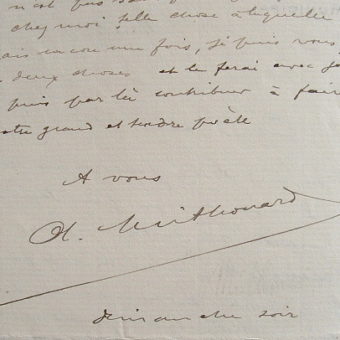 n'est pas
chez moi, telle chose à laquelle
ais encore une fois, je puis vous
deux choses et le ferai avec
puis par là contribuer à fair
otre grand et tendre poète
A vous
A. Mithouard
dimanche soir